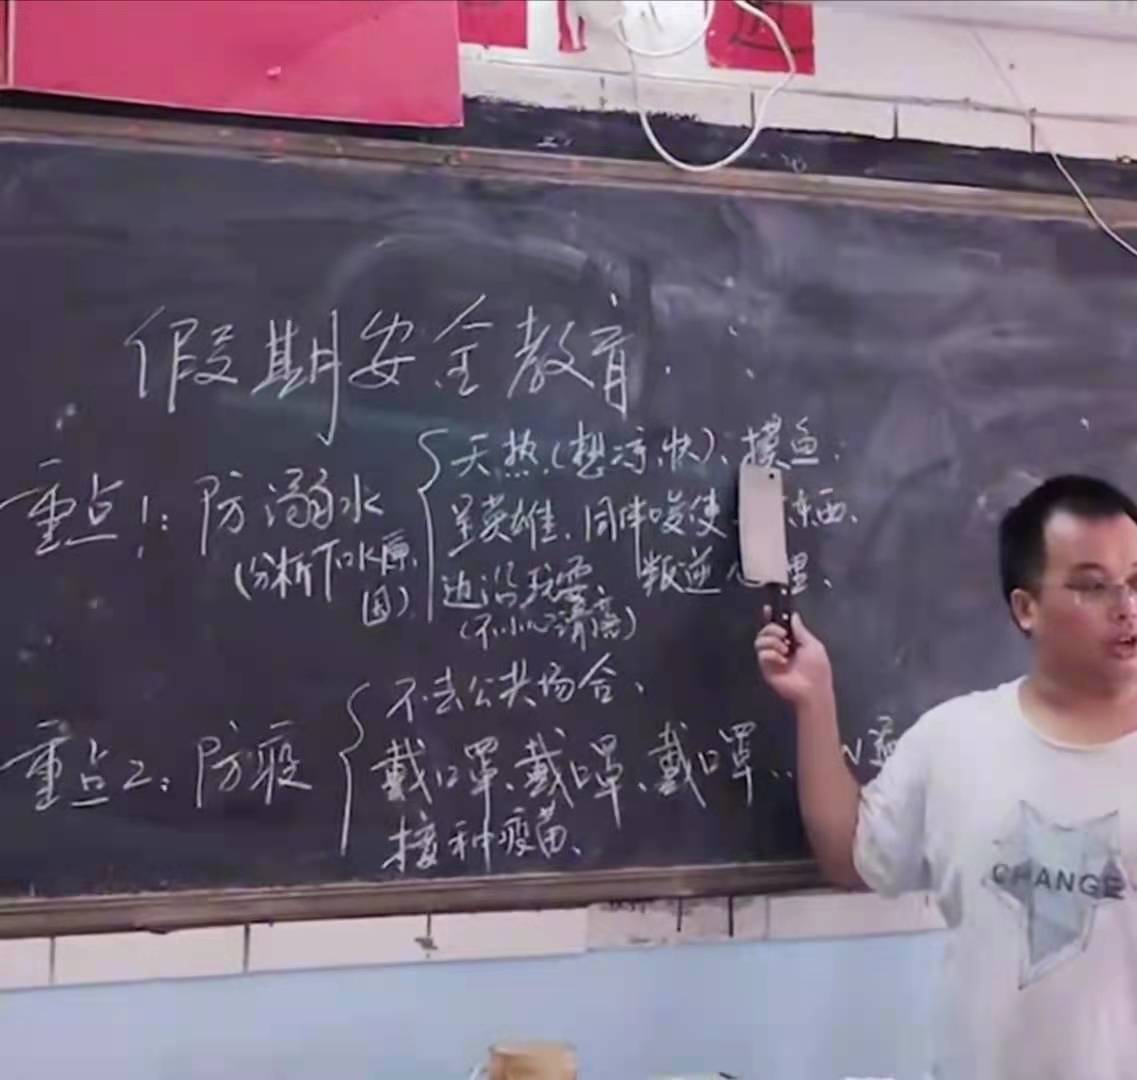 假期安全教育.
重点1:防溺水
(分析下水原
因)
天热(想凉快)、摸鱼、
呈英雄、同伴唆使、东西、
边沿玩耍 叛逆心理、
(不小心滑落)
重点2:防疫
不去公共场合、
戴口罩、戴口罩、戴口罩...
接种疫苗、
CHANGE